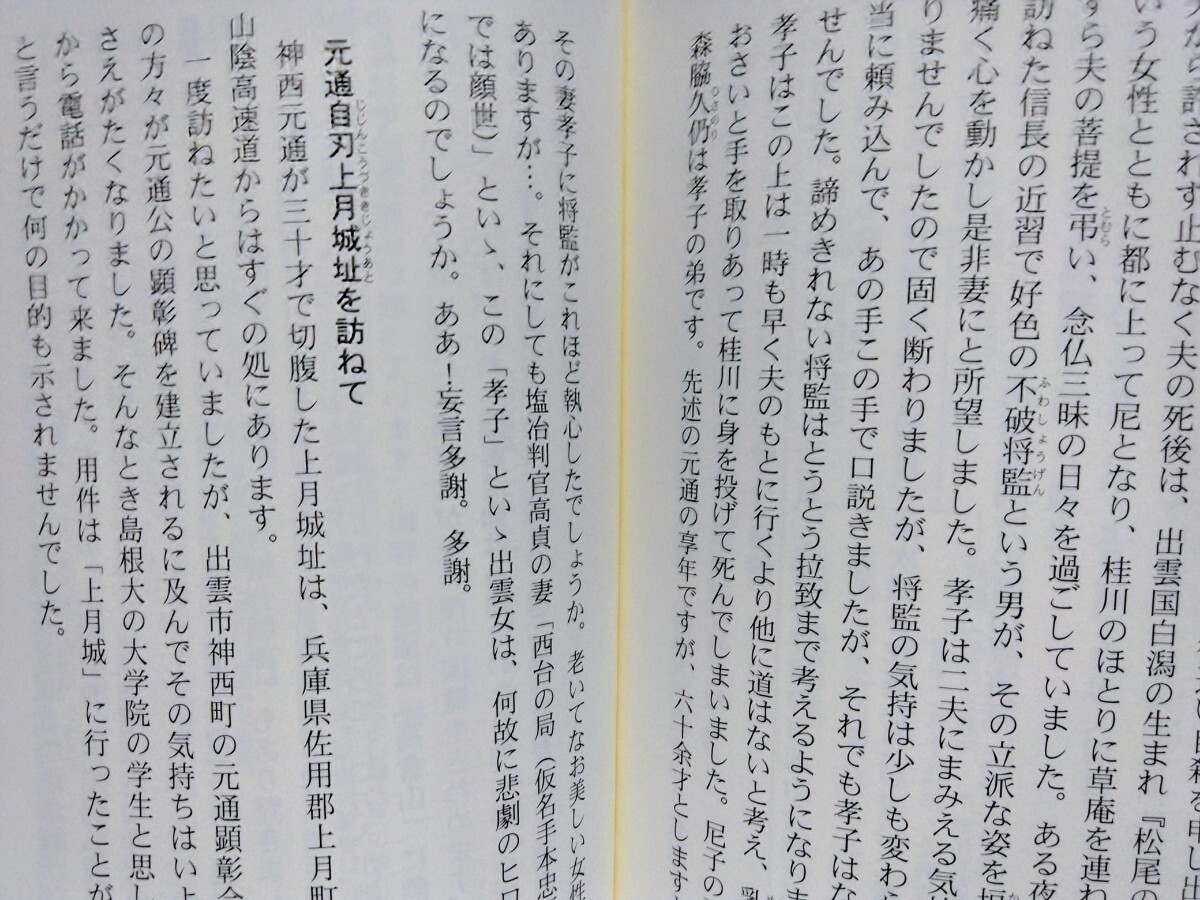 たら許されず止むなく夫の死後は、出雲国白潟の生まれ『松尾の
いう女性とともに都に上って尼となり、桂川のほとりに草庵を連れ
すら夫の菩提を弔い、念仏三昧の日々を過ごしていました。ある夜
訪ねた信長の近習で好色の不破将監という男が、その立派な姿を
痛く心を動かし是非妻にと所望しました。孝子は二夫にまみえる気
りませんでしたので固く断わりましたが、将監の気持は少しも変わら
当に頼み込んで、あの手この手で口説きましたが、それでも孝子はな
せんでした。諦めきれない将監はとうとう拉致まで考えるようになりま
孝子はこの上は一時も早く夫のもとに行くより他に道はないと考え、乳
おさいと手を取りあって桂川に身を投げて死んでしまいました。尼子の
森脇久仍は孝子の弟です。先述の元通の享年ですが、六十余才とします
その妻孝子に将監がこれほど執心したでしょうか。老いてなお美しい女性
ありますが…。それにしても塩冶判官高貞の妻「西台の局(仮名手本忠
では顔世)」といゝ、この「孝子」といゝ出雲女は、何故に悲劇のヒロ
になるのでしょうか。ああ!妄言多謝。多謝。
元通自刃上月城址を訪ねて
神西元通が三十才で切腹した上月城址は、兵庫県佐用郡上月町
山陰高速道からはすぐの処にあります。
一度訪ねたいと思っていましたが、出雲市神西町の元通顕彰会
の方々が元通公の顕彰碑を建立されるに及んでその気持ちはいよ
さえがたくなりました。そんなとき島根大の大学院の学生と思し
から電話がかかって来ました。用件は「上月城」に行ったことが
と言うだけで何の目的も示されませんでした。